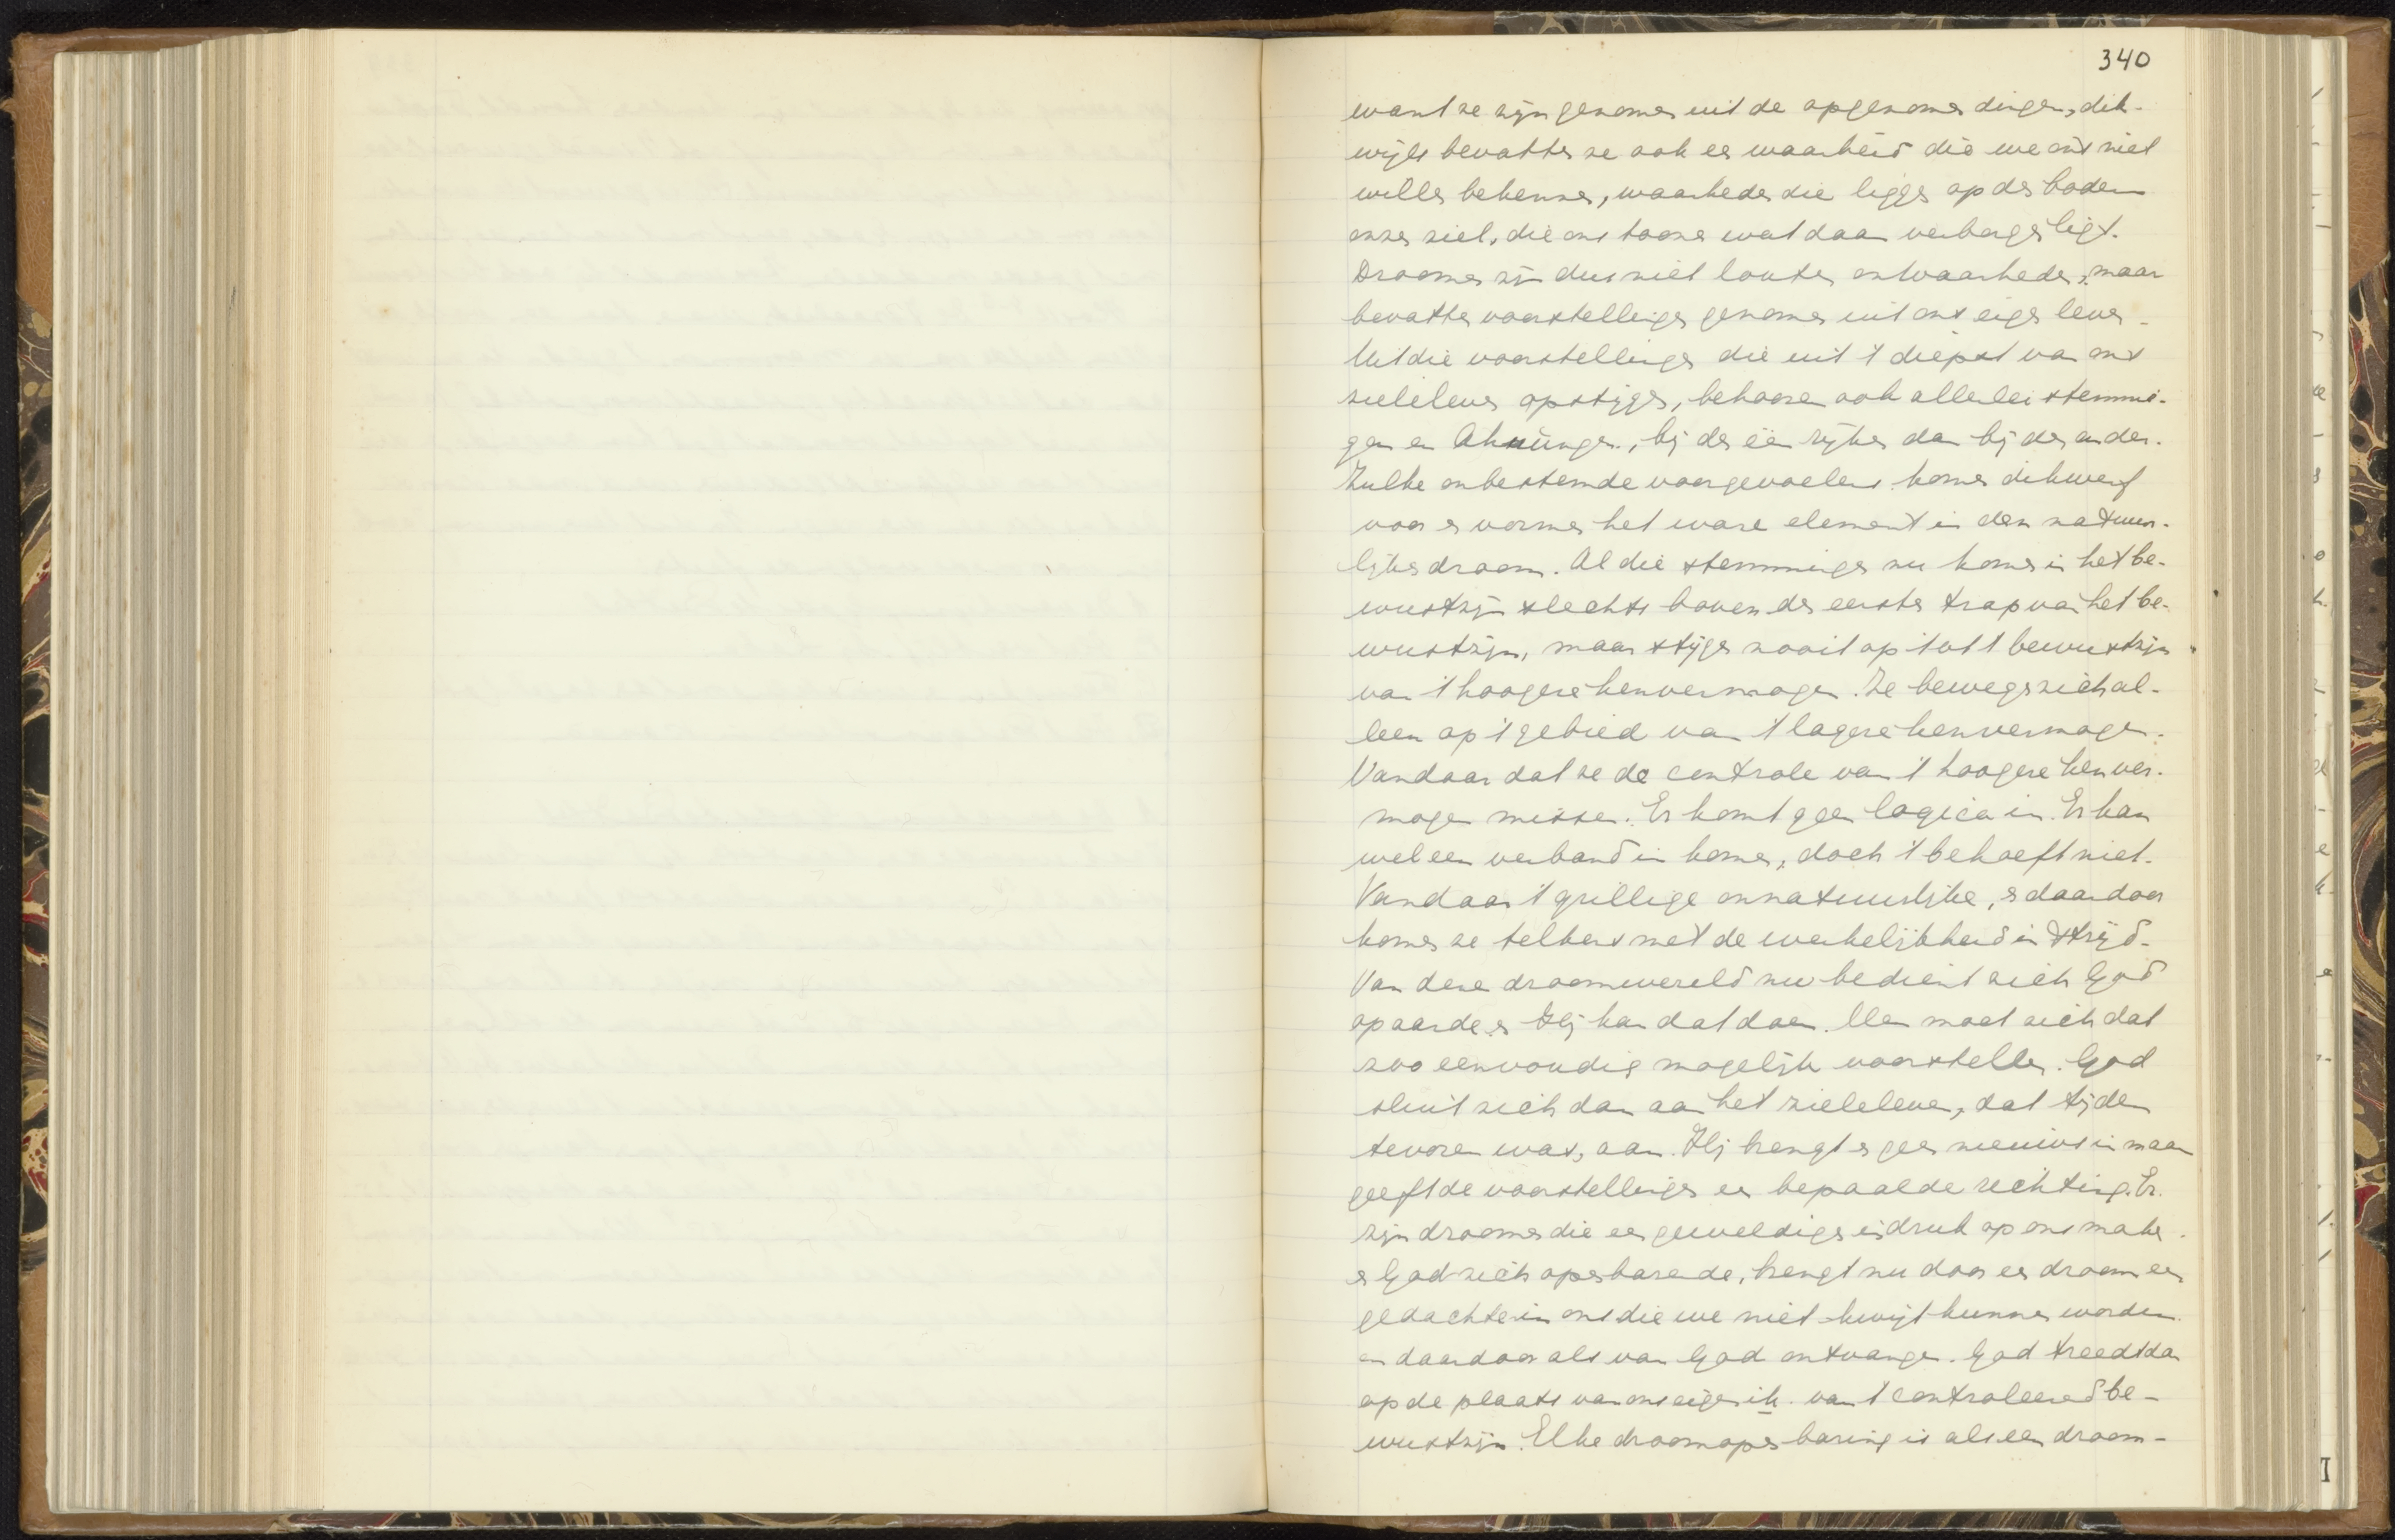 340
want ze zijn genomen uit de opgenomen dingen, dik-
wijls bevatten ze ook een waarheid die we ons niet
willen bekennen, waarheden die liggen op den bodem
onzer ziel, die ons toonen wat daar verborgen ligt.
Droomen zijn dus niet louter onwaarheden, maar
bevatten voorstellingen genomen uit ons eigen leven.
Uit die voorstellingen die uit 't diepst van ons
zieleleven opstijgen, behooren ook allerlei stemmin-
gen en Ahnungen, bij den één rijker dan bij den ander.
Zulke onbestemde voorgevoelens komen dikwerf
voor en vormen het ware element in den natuur-
lijken droom. Al die stemmingen nu komen in het be-
wustzijn slechts boven den eersten trap van het be-
wustzijn, maar stijgen nooit op tot 't bewustzijn
van 't hoogere kenvermogen. Ze bewegen zich al-
leen op 't gebied van 't lagere kenvermogen.
Vandaar dat ze de controle van 't hoogere kenver-
mogen missen. Er komt geen logica in. Er kan
wel een verband in komen, doch 't behoeft niet.
Vandaar 't grillige onnatuurlijke, en daardoor
komen ze telkens met de werkelijkheid in strijd.
Van deze droomwereld nu bedient zich God
op aarde en Hij kan dat doen. Men moet zich dat
zoo eenvoudig mogelijk voorstellen. God
sluit zich dan aan het zieleleven, dat tijden
tevoren was, aan. Hij brengt er geen nieuws in maar
geeft de voorstellingen een bepaalde richting. Er
zijn droomen die een geweldigen indruk op ons maken.
en God zich openbarende, brengt nu door een droom een
gedachte in ons die we niet kwijt kunnen worden
en daardoor als van God ontvangen. God treedt dan
op de plaats van ons eigen ik van 't controleerend be-
wustzijn. Elke droomopenbaring is als een droom-